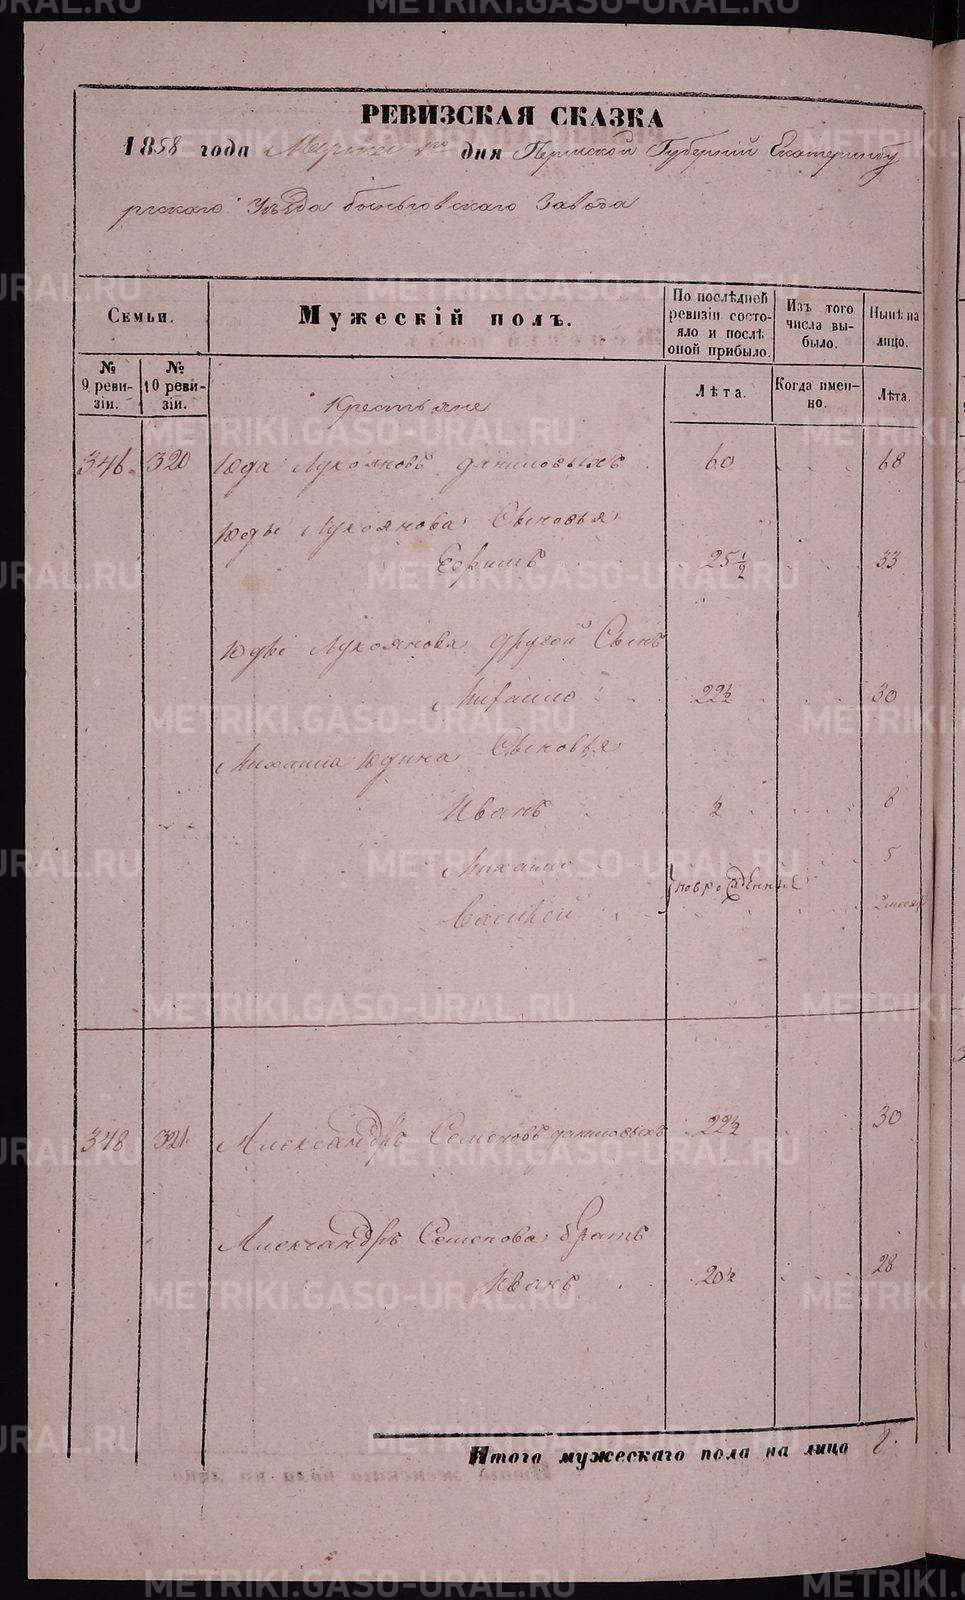 РЕВИЗСКАЯ СКАЗКА
1858 года Марта дня Пермской Губернии Екатеринбу
ргскаго Уѣзда Быньговскаго Завода
Семьи.
Мужескій полъ.
По послѣдней ревизіи состояло и послѣ оной прибыло.
Изъ того числа выбыло.
Нынѣ на лицо.
№ 9 ревизіи.
№ 10 ревизіи.
Лѣта.
Когда именно.
Лѣта.
Крестьяне
346. 320 Юда Лукояновъ Даниловыхъ 60 68
Юды Лукоянова Сыновья
Ефимъ 25 1/2 33
Юды Лукоянова другой Сынъ
Михаило 22 1/2 30
Михаила Юдина Сыновья
Иванъ 1/2 8
Михаило 5
новорожденные
Василей
348 321. Александръ Семеновъ Даниловыхъ 22 1/2 30
Александръ Семенова братъ
Иванъ 20 1/2 28
Итого мужескаго пола на лицо 8.
METRIKI.GASO-URAL.RU